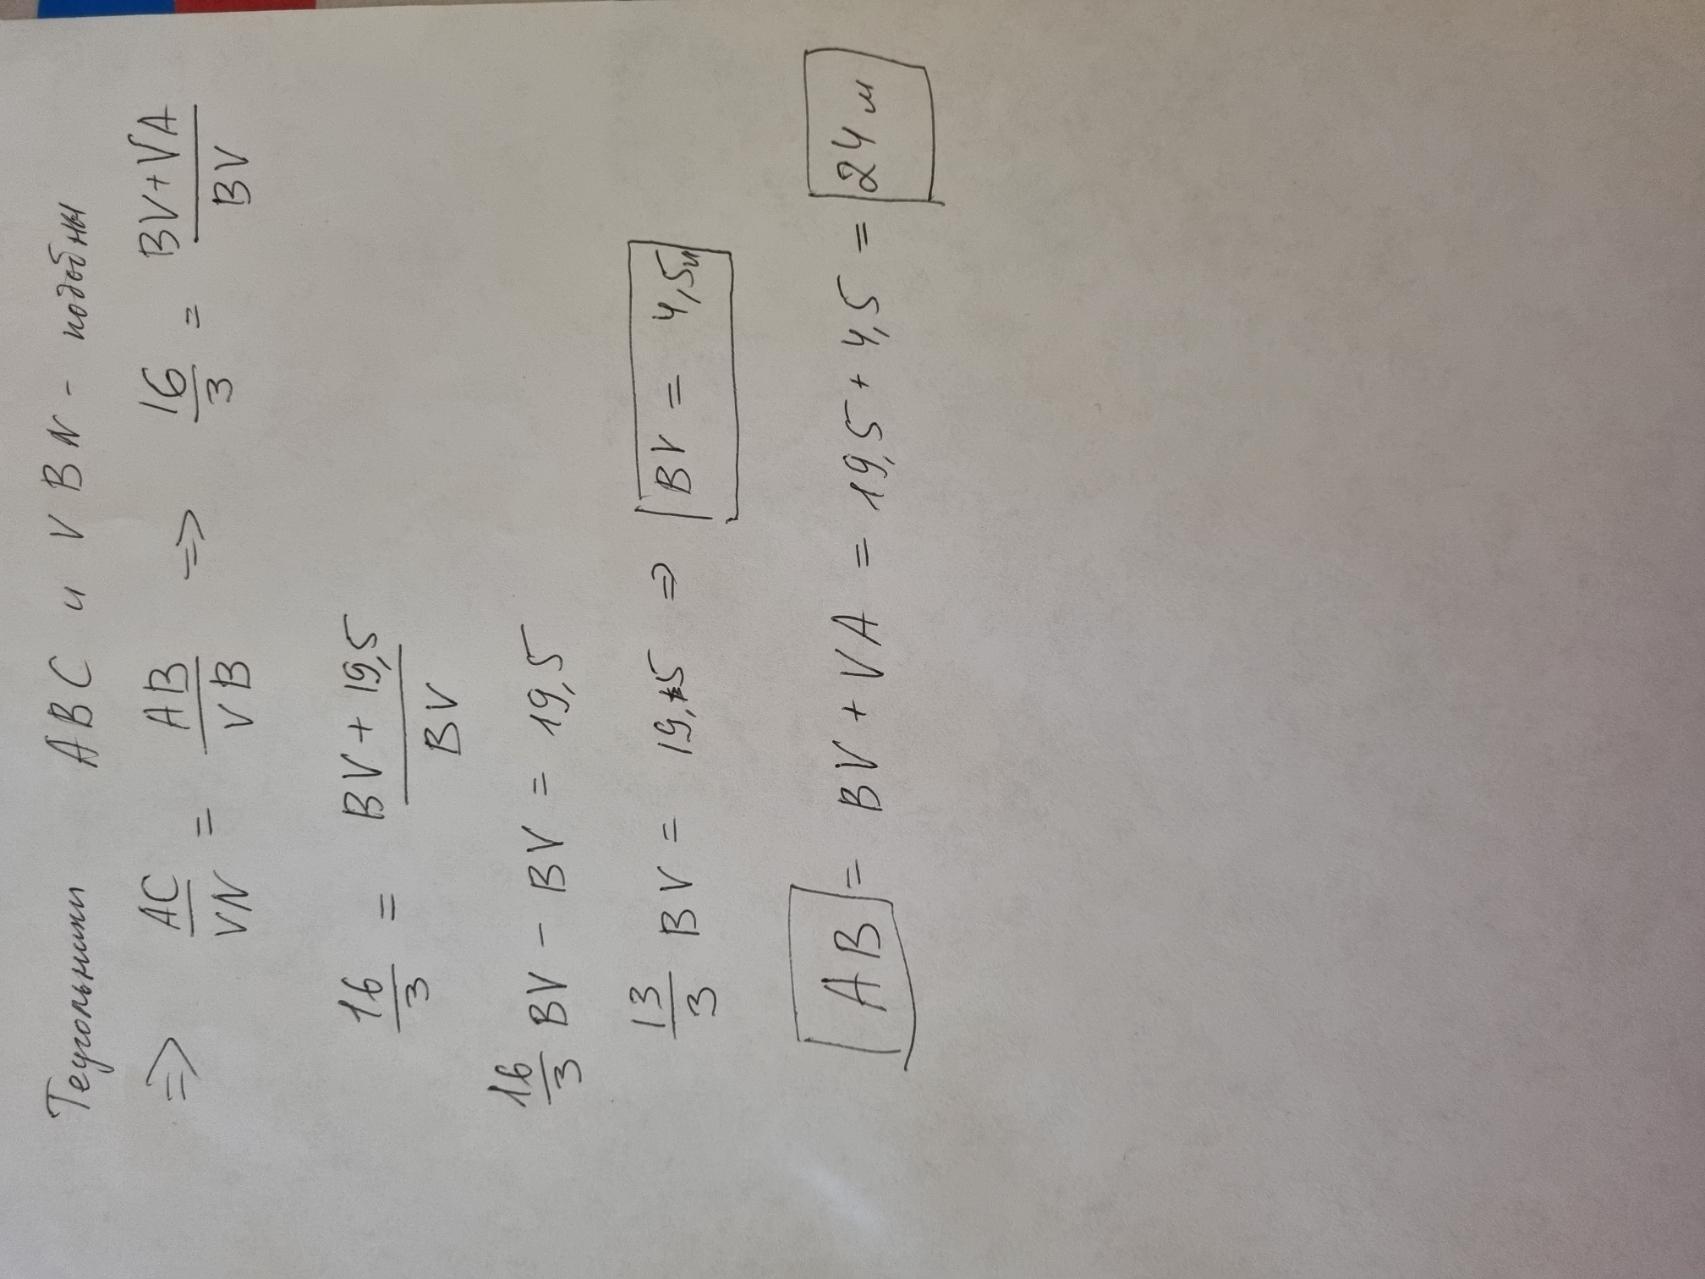 Теугольники ABC и VBN - подобны
=> AC/VN = AB/VB => 16/3 = BV+VA/BV
16/3 = BV+19,5/BV
16/3 BV - BV = 19,5
13/3 BV = 19,5 => BV = 4,5м
AB = BV + VA = 19,5 + 4,5 = 24 м